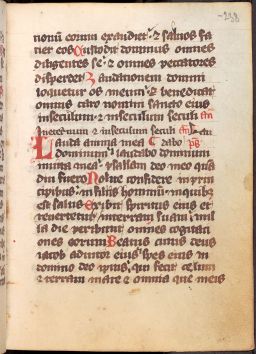 -238
nonū eorum exaudiet: & saluos fa
ciet eos Custodit dominus omnes
diligentes se: & omnes peccatores
disperdet Laudationem domini
loquetur os meum: & benedicat
omnis caro nomini sancto eius
inseculum: & inseculum seculi
inaeternum & inseculum seculi ps
Lauda anima mea
dominum: laudabo dominum
inuita mea: psallam deo meo quā
diu fuero Nolite confidere in prin
cipibus: in filiis hominū: inquibus
est salus Exibit spiritus eius et
reuertetur interram suam: in il
la die peribunt omnes cogitati
ones eorum Beatus cuius deus
iacob adiutor eius spes eius in
domino deo ipsius: qui fecit celum
& terram mare & omnia que in eis